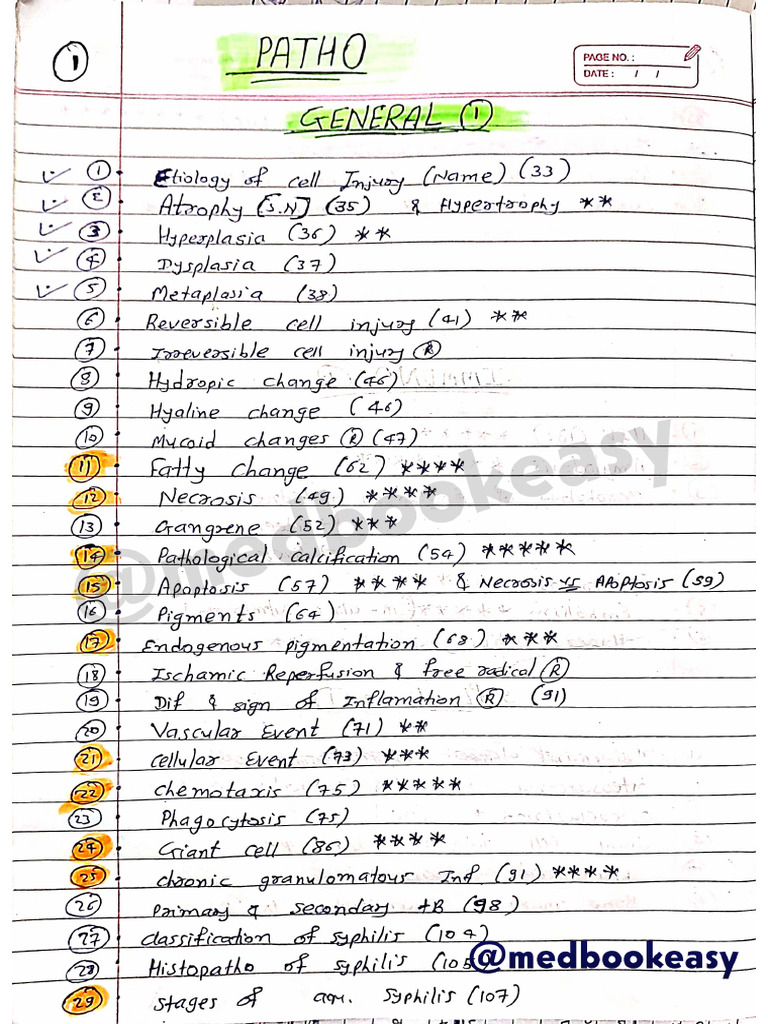 1
PATHO
PAGE NO. :
DATE : / /
GENERAL 1
1 Etiology of cell Injury (Name) (33)
2 Atrophy [S.N] (35) & Hypertrophy **
3 Hyperplasia (36) **
4 Dysplasia (37)
5 Metaplasia (38)
6 Reversible cell injury (41) **
7 Irreversible cell injury R
8 Hydropic change (46)
9 Hyaline change (46)
10 Mucoid changes R (47)
11 Fatty change (62) ****
12 Necrosis (49) ****
13 Gangrene (52) ***
14 Pathological calcification (54) *****
15 Apoptosis (57) **** & Necrosis vs Apoptosis (59)
16 Pigments (64)
17 Endogenous pigmentation (63) ***
18 Ischamic Reperfusion & free radical R
19 Dif & sign of Inflamation R (91)
20 Vascular Event (71) **
21 cellular Event (73) ***
22 chemotaxis (75) *****
23 Phagocytosis (75)
24 Giant cell (86) ****
25 chronic granulomatous Inf (91) ****
26 Primary & secondary tB (98)
27 classification of syphilis (104)
28 Histopatho of syphilis (105
29 stages of syphilis (107)
@medbookeasy
@medbookeasy